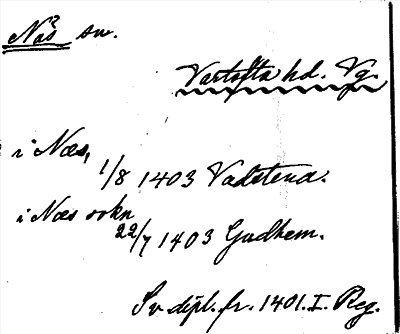 Nås sn.
Vartofta hd. Vg.
i Næs,
1/8 1403 Vadstena.
i Næs sokn
22/7 1403 Gudhem.
Sv. dipl. fr. 1401. I. Reg.